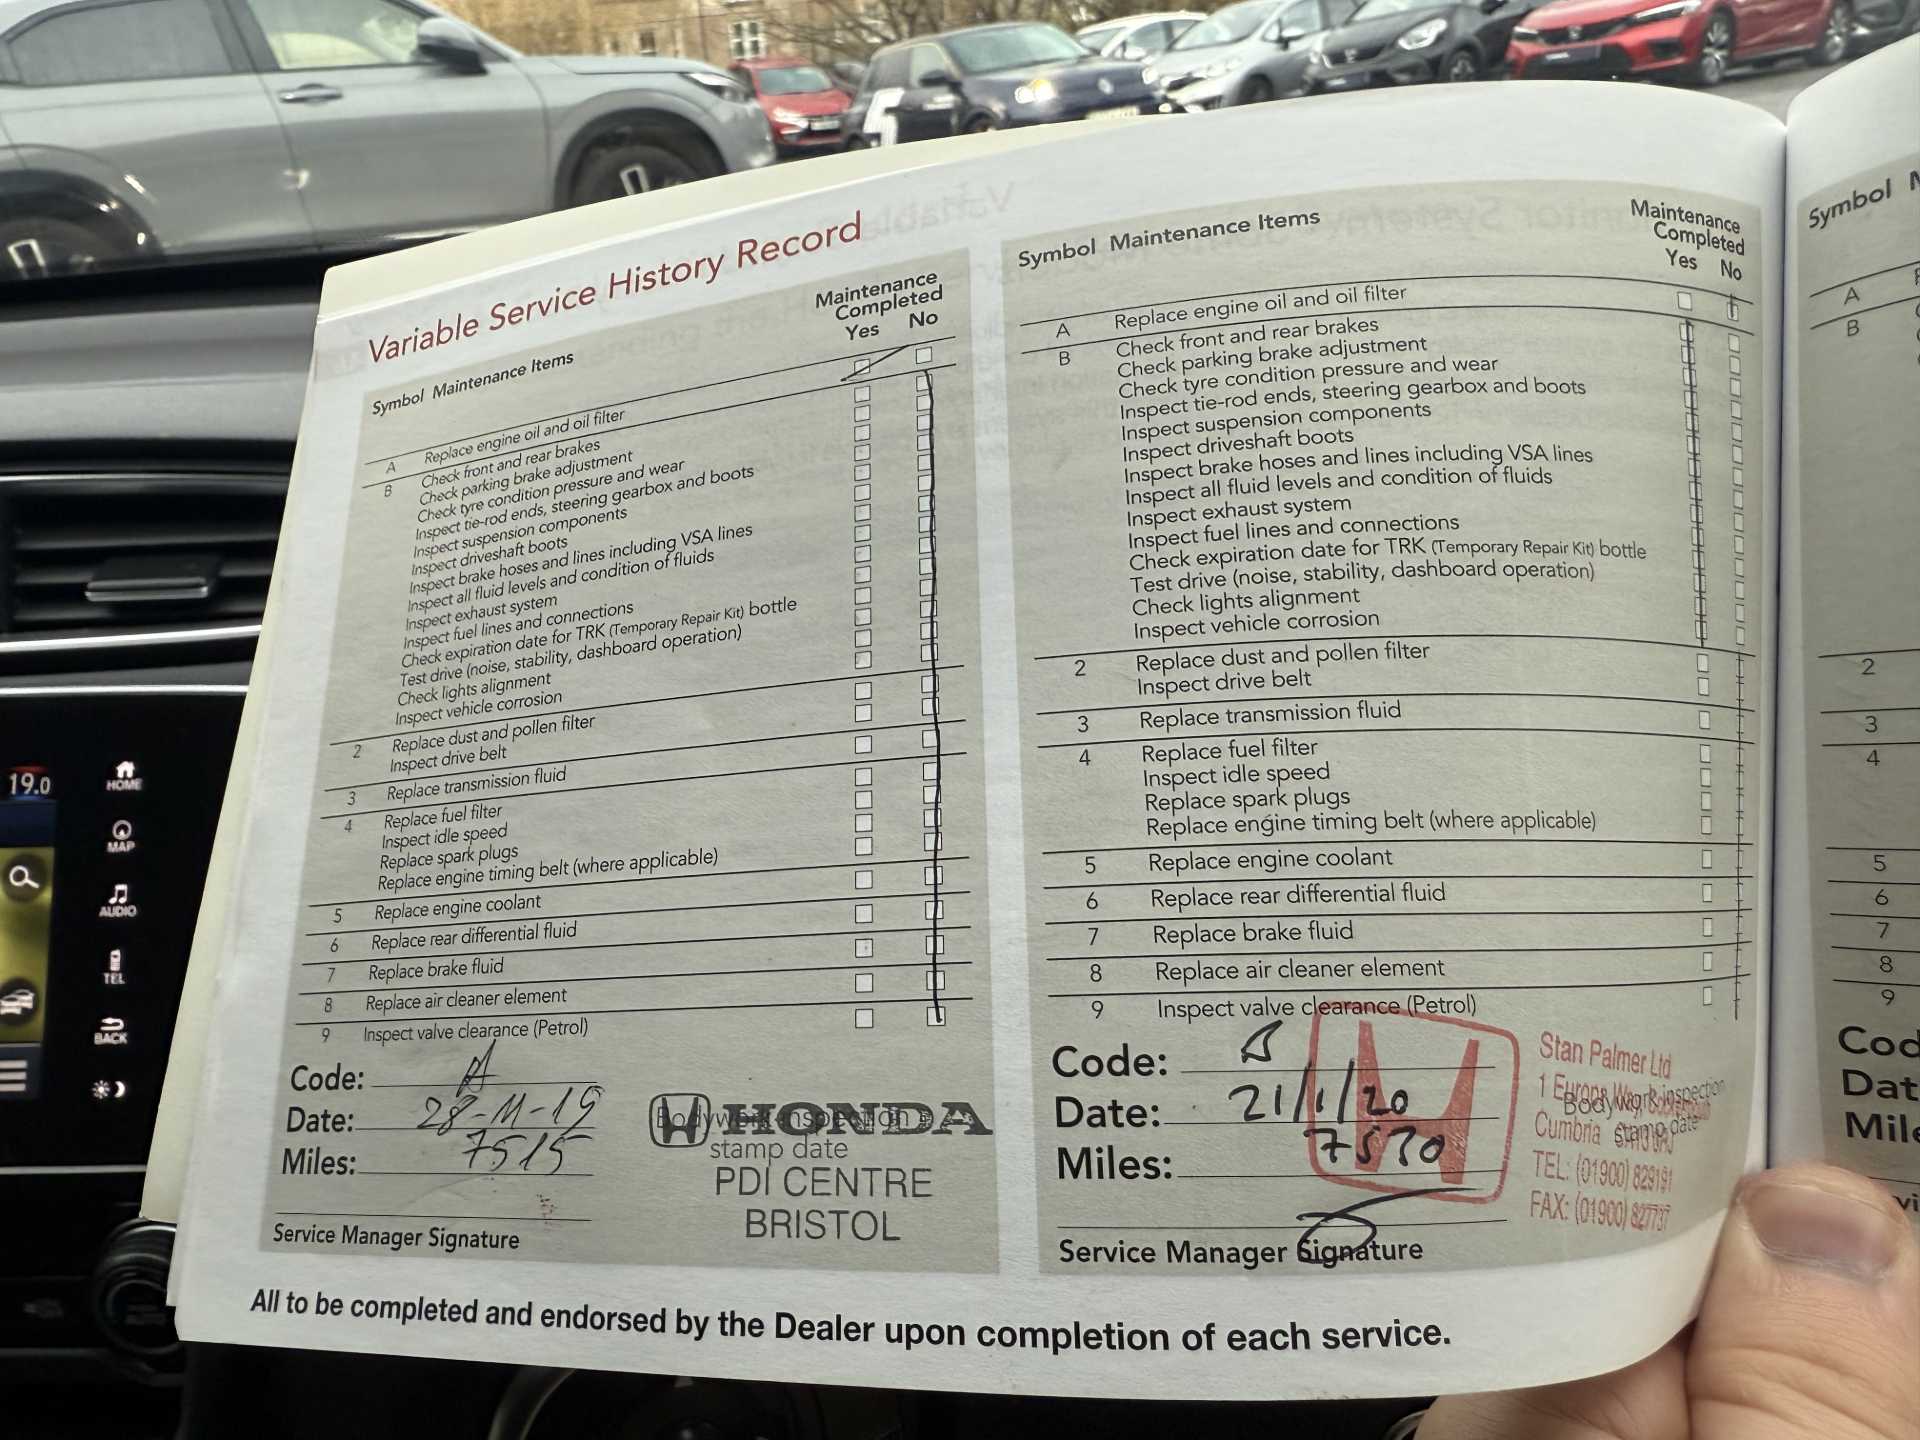 Variable Service History Record
Symbol Maintenance Items
Maintenance
Completed
Yes No
A Replace engine oil and oil filter
B Check front and rear brakes
Check parking brake adjustment
Check tyre condition pressure and wear
Inspect tie-rod ends, steering gearbox and boots
Inspect suspension components
Inspect driveshaft boots
Inspect brake hoses and lines including VSA lines
Inspect all fluid levels and condition of fluids
Inspect exhaust system
Inspect fuel lines and connections
Check expiration date for TRK (Temporary Repair Kit) bottle
Test drive (noise, stability, dashboard operation)
Check lights alignment
Inspect vehicle corrosion
2 Replace dust and pollen filter
Inspect drive belt
3 Replace transmission fluid
4 Replace fuel filter
Inspect idle speed
Replace spark plugs
Replace engine timing belt (where applicable)
5 Replace engine coolant
6 Replace rear differential fluid
7 Replace brake fluid
8 Replace air cleaner element
9 Inspect valve clearance (Petrol)
Code: A
Date: 28-11-19
Miles: 7515
Service Manager Signature
Bodywork inspection
HONDA
stamp date
PDI CENTRE
BRISTOL
Symbol Maintenance Items
Maintenance
Completed
Yes No
A Replace engine oil and oil filter
B Check front and rear brakes
Check parking brake adjustment
Check tyre condition pressure and wear
Inspect tie-rod ends, steering gearbox and boots
Inspect suspension components
Inspect driveshaft boots
Inspect brake hoses and lines including VSA lines
Inspect all fluid levels and condition of fluids
Inspect exhaust system
Inspect fuel lines and connections
Check expiration date for TRK (Temporary Repair Kit) bottle
Test drive (noise, stability, dashboard operation)
Check lights alignment
Inspect vehicle corrosion
2 Replace dust and pollen filter
Inspect drive belt
3 Replace transmission fluid
4 Replace fuel filter
Inspect idle speed
Replace spark plugs
Replace engine timing belt (where applicable)
5 Replace engine coolant
6 Replace rear differential fluid
7 Replace brake fluid
8 Replace air cleaner element
9 Inspect valve clearance (Petrol)
Code: B
Date: 21/1/20
Miles: 7570
Service Manager Signature
Stan Palmer Ltd
1 Europe Way,
Bodywork inspection
Cumbria
stamp date
TEL: (01900) 829191
FAX: (01900) 827737
All to be completed and endorsed by the Dealer upon completion of each service.
Symbol
A
B
2
3
4
5
6
7
8
9
19.0
HOME
MAP
AUDIO
TEL
BACK